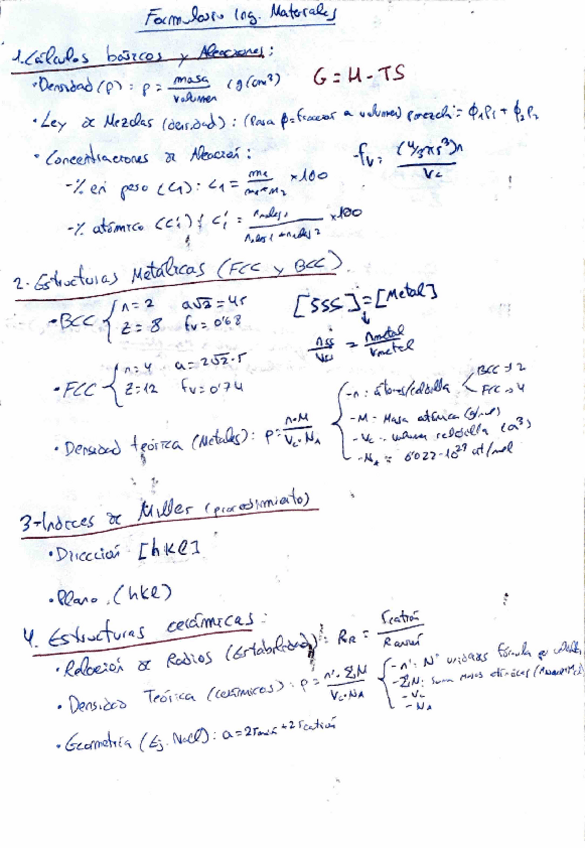 Formulario Ing. Materiales
1. Cálculos básicos y Aleaciones:
• Densidad (ρ): ρ = masa / volumen (g/cm³) G = H - TS
• Ley de Mezclas (densidad): (Para β = fracción a volumen) ρmezcla = ϕ₁ρ₁ + ϕ₂ρ₂
• Concentraciones de Aleación: - fv = (4/3πr³)n / Vc
- % en peso (C₁): C₁ = m₁ / m₁+m₂ × 100
- % atómico (C'₁): C'₁ = nmoles₁ / nmoles₁ + nmoles₂ × 100
2. Estructuras Metálicas (FCC y BCC).
• BCC { n = 2 a√3 = 4r
Z = 8 fv = 0'68
[SSS] = [Metal]
nss / Vss = nmetal / Vmetal
• FCC { n = 4 a = 2√2·r
Z = 12 fv = 0'74
• Densidad teórica (Metales): ρ = n·M / Vc·NA
- n: átomos/celdilla < BCC → 2
FCC → 4
- M: Masa atómica (g/mol)
- Vc: volumen celdilla (a³)
- NA = 6'022·10²³ at/mol
3-Índices de Miller (procedimiento)
• Dirección [hkl]
• Plano. (hkl)
4. Estructuras cerámicas:
• Relación de Radios (Estabilidad): RR = rcatión / Ranión
• Densidad Teórica (cerámicos): ρ = n'·ΣM / Vc·NA
- n': Nº unidades fórmula por celdilla
- ΣM: suma masas atómicas
- Vc
- NA
• Geometría (Ej. NaCl): a = 2ranión + 2rcatión